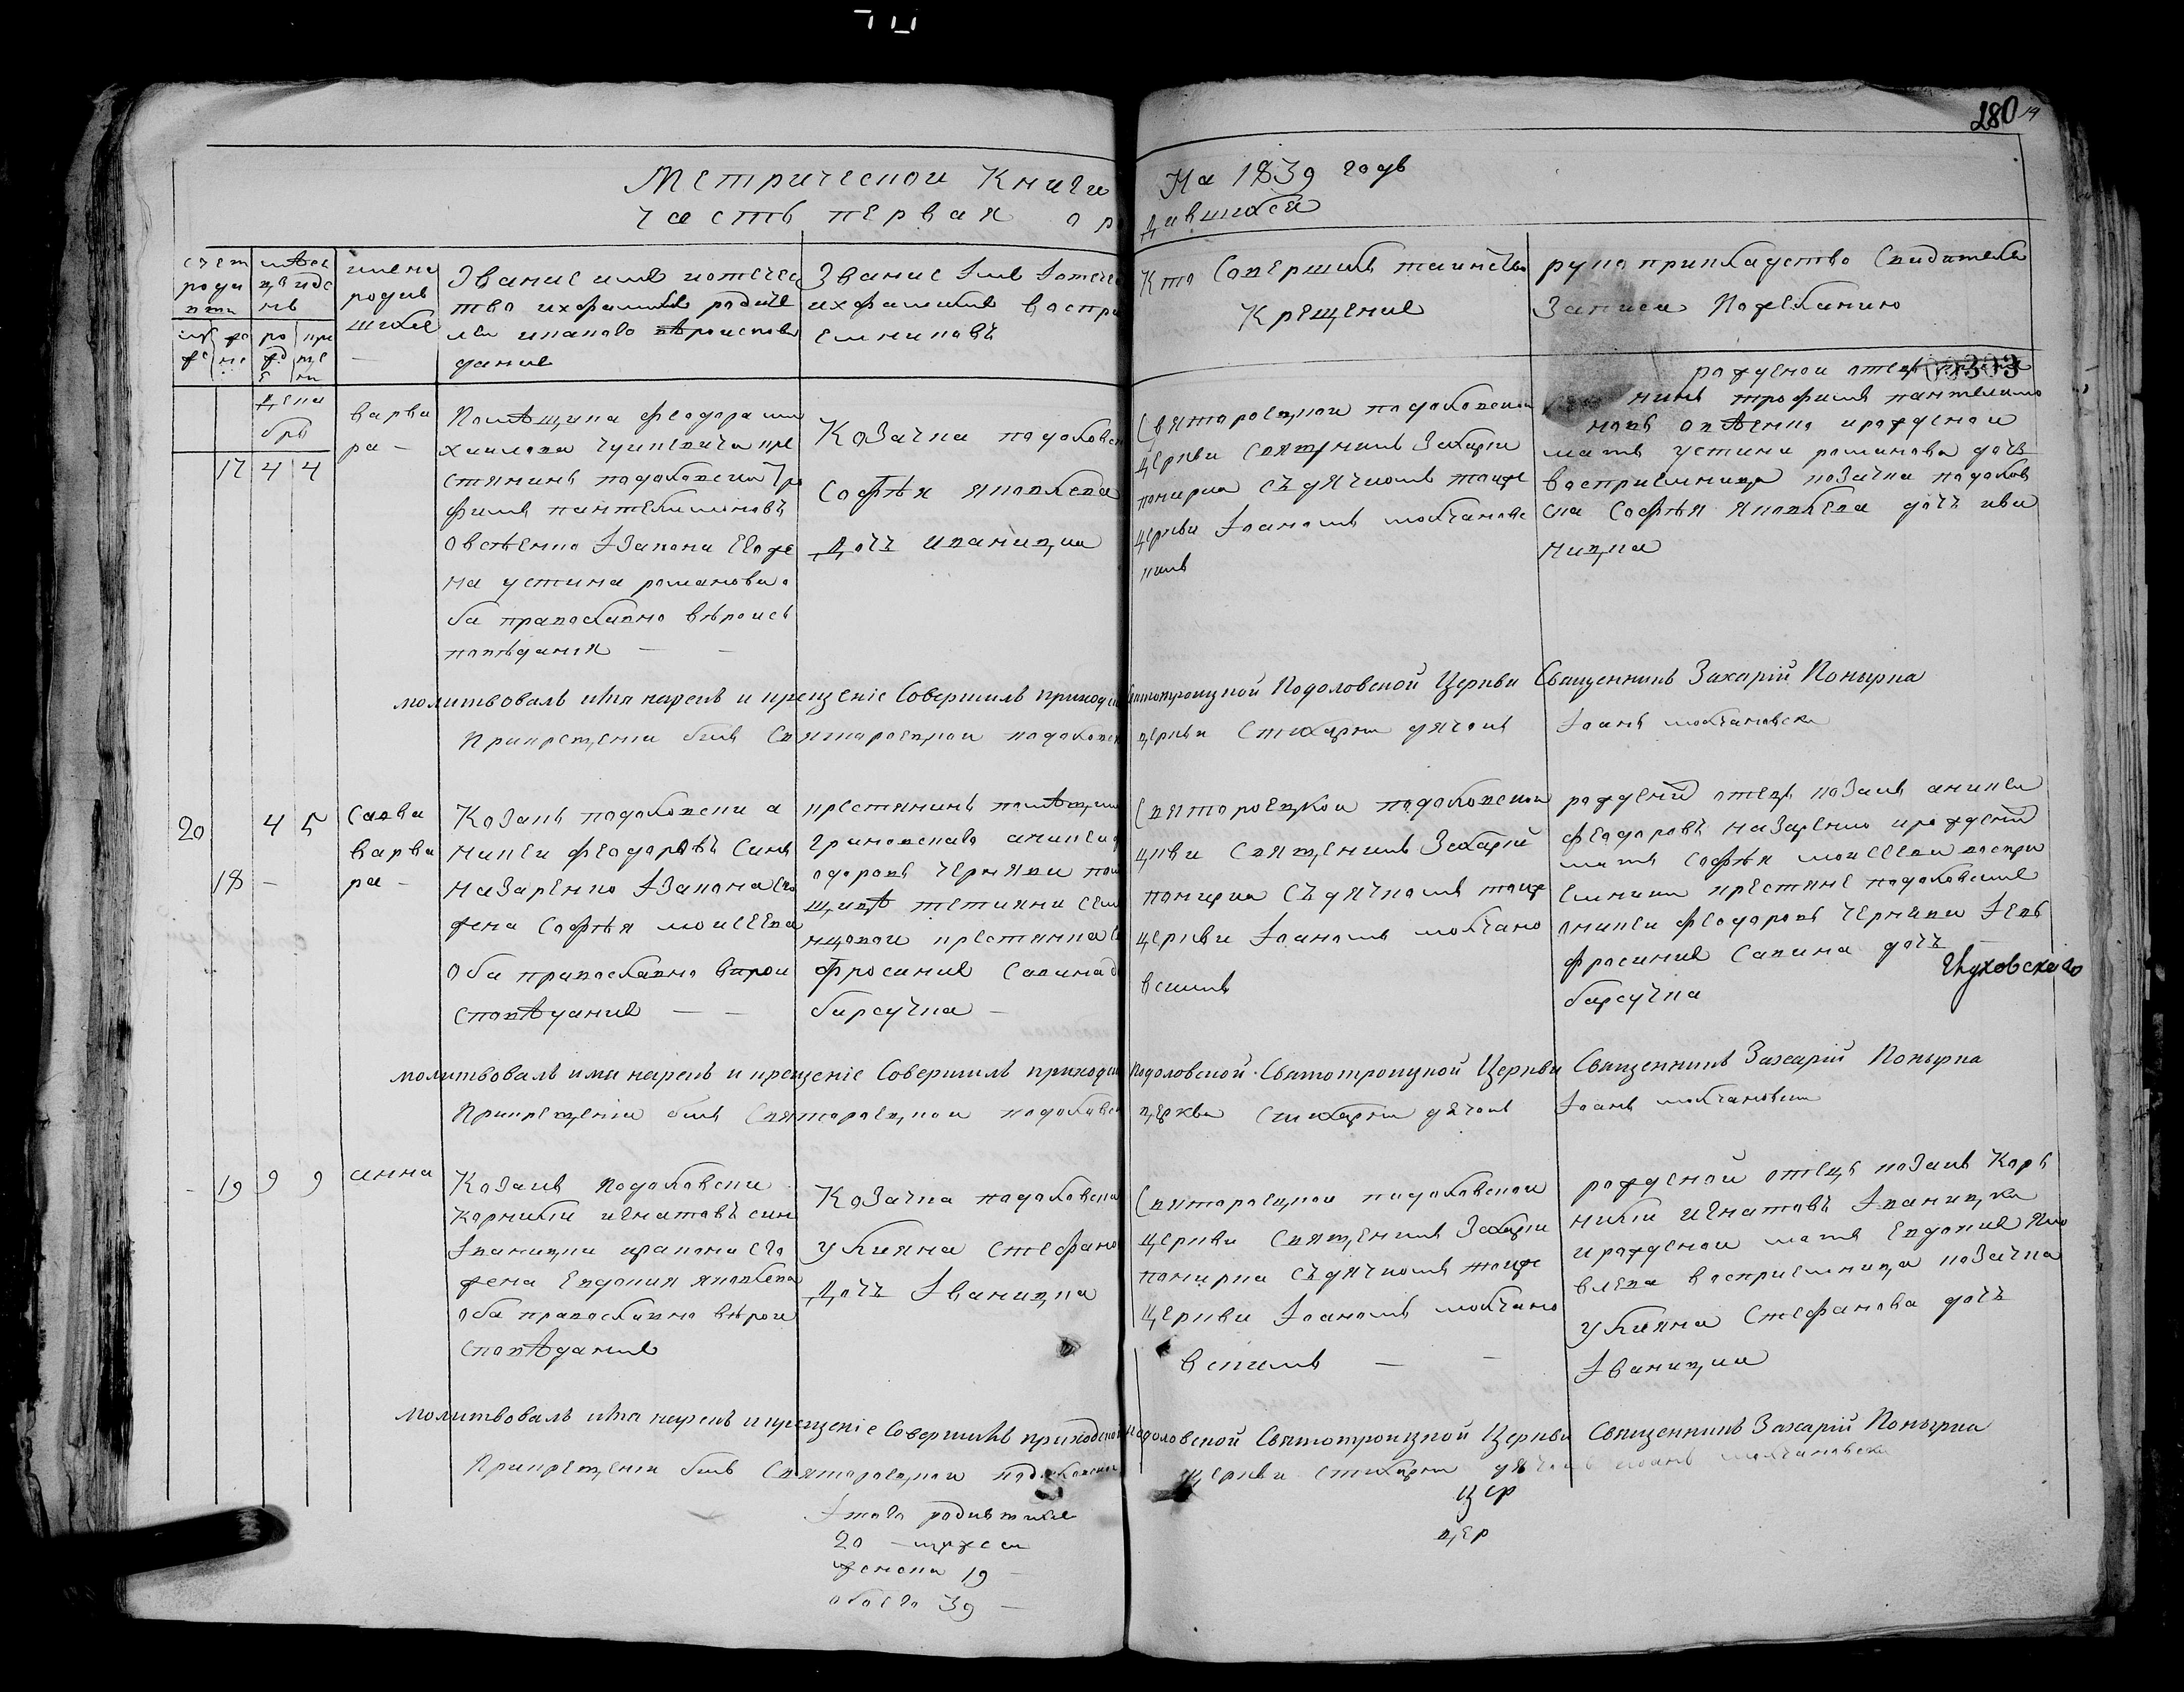 280
14
Метрической Книги
На 1839 годъ
часть первая о ро
дившихся
счет роди
имена родив шихся
Званіе имя и отечес
тво ихъ фамилія родите
леи и какого вѣроиспове
дания
Званіе Імя Іотечес
ихъ фамилия воспри
емниковъ
Кто Совершилъ таинство
Крещение
руко прикладство Свидителъ
Записи По желанию
00303
дека
бръ
17 4 4
варва
ра –
Помѣщика феодора ми
хаилова
стянинъ подоловски Тро
фимъ пантелимоновъ
овсѣенко Ізакона Его же
на устина романова
ба православно вѣроисъ
повѣдания
Козачка подоловск
Софѣя яковлева
Дочъ иваницка
Святороецкои подоловскои
церкви Священикъ Захарїи
понирка съ дячкомъ тоиже
церкви Іоаномъ молчановс
кимъ
рожденои отецъ
нинъ трофимъ пантелимо
новъ овсѣенко ирожденои
матъ устина романова дочъ
восприемница козачка подолов
ска Софѣя яковлева дочъ ива
ницка
молитвовалъ имя нарекъ и крещеніе Совершилъ приходск
Святотроицкой Подоловской Церкви Священникъ Захарій Понырка
Прикрещении былъ Святороецкои подоловск
церкви Стихарни дячокъ Іоанъ молчановски
20 4 5
18 –
Савва
варва
ра –
Козакъ подоловски а
никеи феодоровъ Синъ
назаренко Ізакона его
жена Софѣя моисеева
оба православно вѣрои
споведание
крестянинъ помѣщик
одоровъ черняви пом
щицѣ тетияни сем
нцовои крестянка
фросиние Савина д
барсучка
Святороецкои подоловскои
цркви Священикъ Захарїй
понирка Съ дячкомъ тоиж
церкви Іоаномъ молчано
вскимъ
рождений отецъ козакъ аникеи
феодоровъ назаренко ирождений
матъ Софѣя моисеева воспри
емники крестяне подоловские
аникеи феодоровъ чернявки Іевъ
фросиние Савина дочъ
барсучка
молитвовалъ имя нарекъ и крещеніе Совершилъ приходск
Подоловской Святотроицкой Церкви Священникъ Захарій Понырка
Прикрещении былъ Святороецкои подоловск
церкви Стихарни дячокъ Іоанъ молчановски
– 19 9 9
анна
Козакъ Подоловски
корнилїи игнатовъ син
Іваницки изакона его
жена Евдокия яковлева
оба православно вѣрои
сповѣдание
Козачка подоловска
улияна Стефано
Дочъ Іваницка
Святороецкои подоловскои
церкви Священикъ Захарїи
понирка Съ дячкомъ тоиже
церкви Іоаномъ молчано
вскимъ –
рожденои отецъ козакъ Корь
нилїи Игнатовъ Іваницки
ирожденои матъ Евдокие яко
влева восприемница козачка
улияна Стефанова дочъ
Іваницка
молитвовалъ имя нарекъ и крещеніе Совершилъ приходской
Подоловской Святотроицкой Церкви Священникъ Захарій Понырка
Прикрещении былъ Святороецкои подоловскои
церкви стихарни дячокъ Іоанъ молчановски
цер
цер
Ітого родившихся
20 – мужески
женска 19 –
обоего 39 –